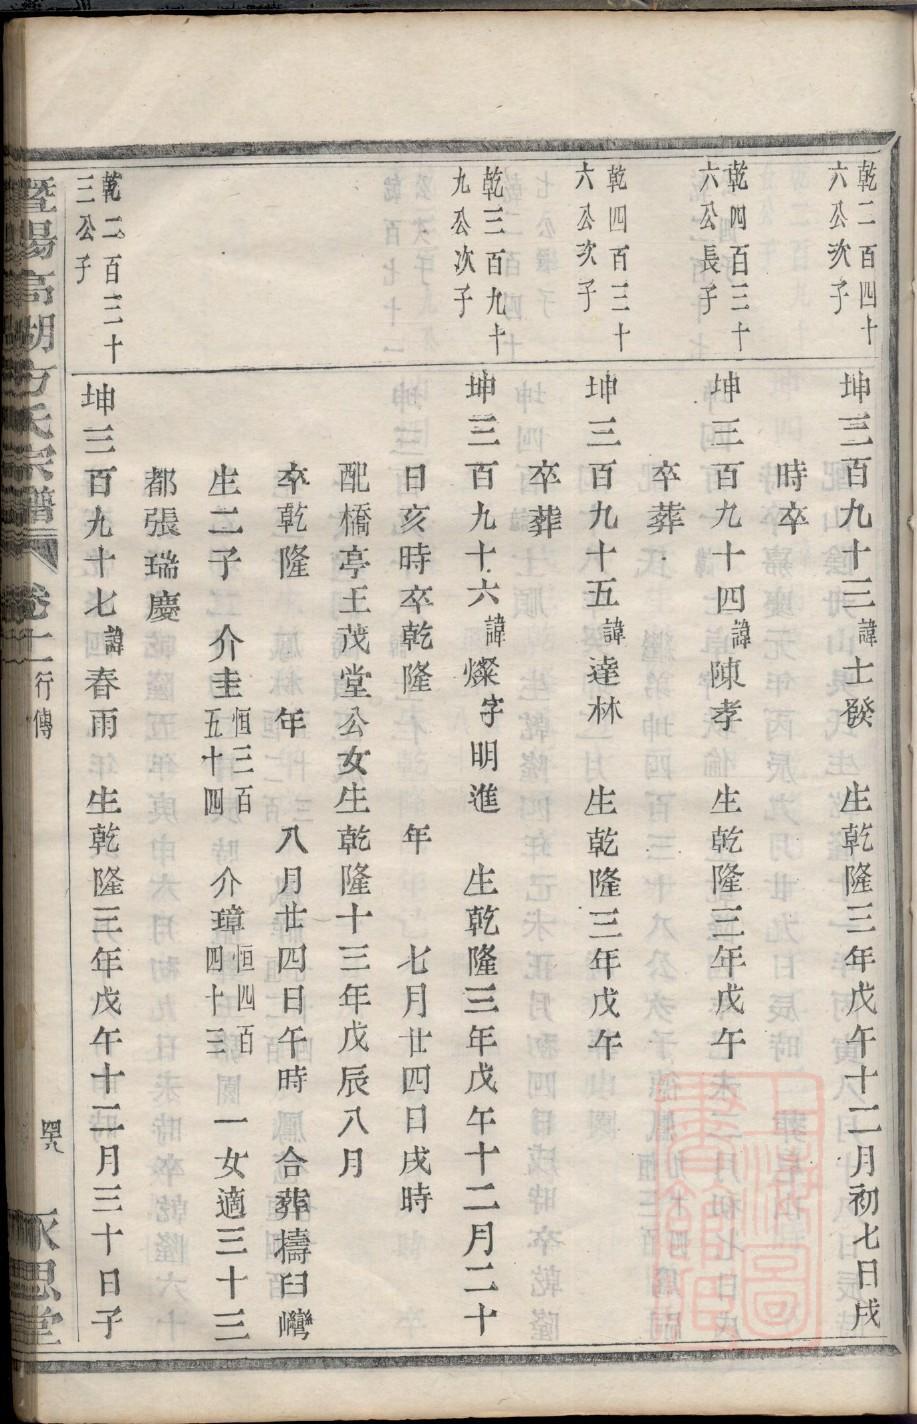 乾二百四十
六公次子
坤三百九十三諱士發 生乾隆三年戊午十二月初七日戌
時卒
乾四百三十
六公長子
坤三百九十四諱陳孝 生乾隆三年戊午
卒葬
乾四百三十
六公次子
坤三百九十五諱達林 生乾隆三年戊午
卒葬
乾三百九十
九公次子
坤三百九十六諱燦字明進 生乾隆三年戊午十二月二十
日亥時卒乾隆 年 七月廿四日戌時
配橋亭王茂堂公女生乾隆十三年戊辰八月
卒乾隆 年 八月廿四日午時 合葬檮臼灣
生二子 介圭恒三百五十四 介璋恒四百四十三 一女適三十三
都張瑞慶
乾二百三十
三公子
坤三百九十七諱春雨 生乾隆三年戊午十二月三十日子
暨陽高湖方氏宗譜 卷十一 行傳 四十八 永思堂